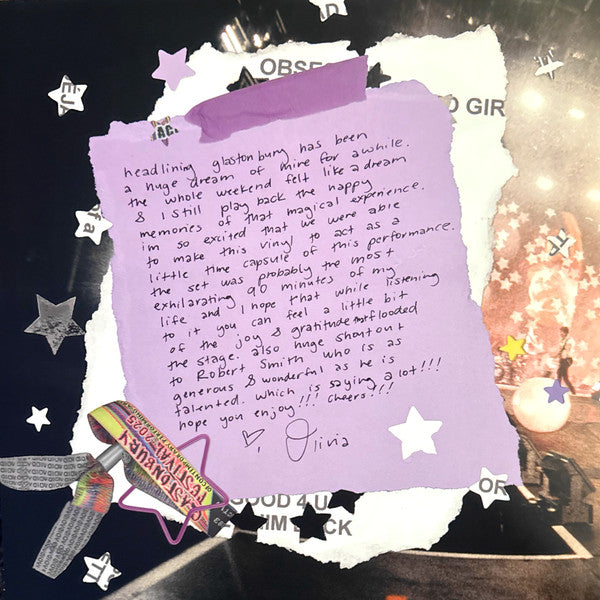 AD
OBSE
O GIR
EJA
ACK
headlining glastonbury has been
a huge dream of mine for awhile.
the whole weekend felt like a dream
& i still play back the happy
memories of that magical experience.
im so excited that we were able
to make this vinyl to act as a
little time capsule of this performance.
the set was probably the most
exhilarating 90 minutes of my
life and i hope that while listening
to it you can feel a little bit
of the joy & gratitude that flooded
the stage. also huge shoutout
to Robert Smith who is as
generous & wonderful as he is
talented. which is saying a lot!!!
hope you enjoy!!! cheers!!!
Olivia
fa
GLASTONBURY
FESTIVAL 2025
GOOD 4 U
OR